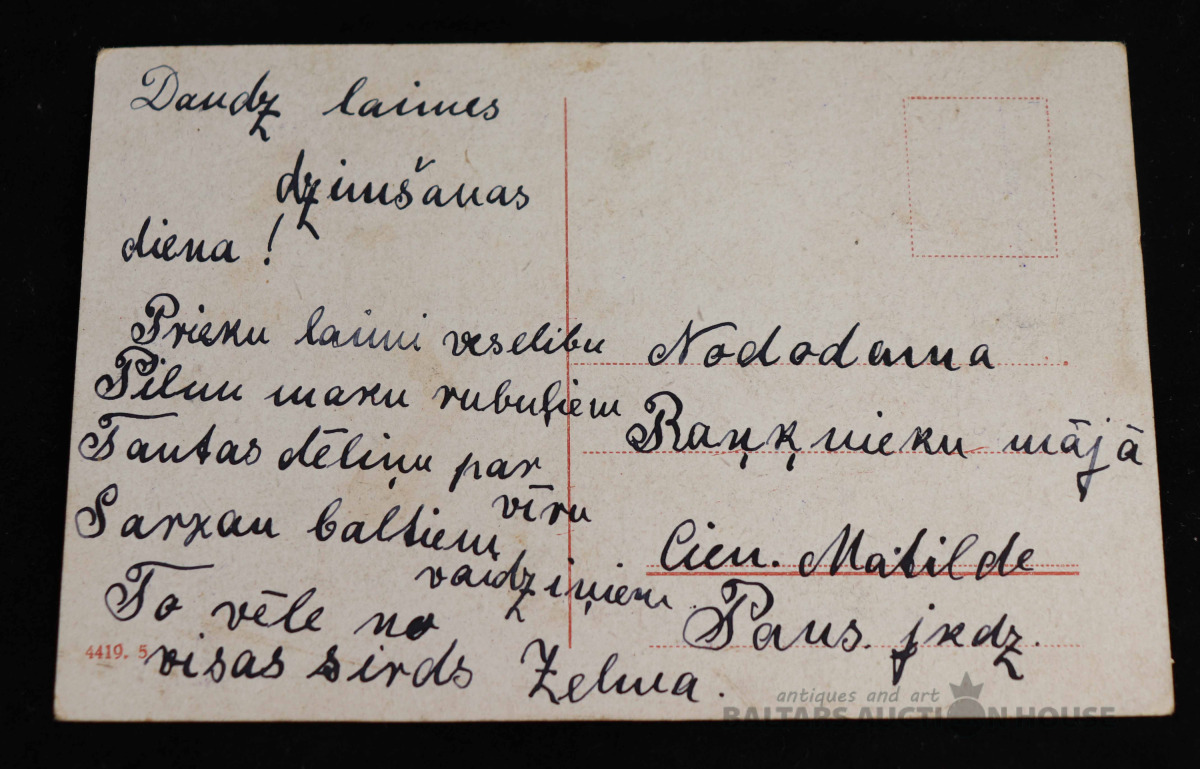 Daudz laimes
dzimšanas
diena!
Prieku laimi veselibu
Pilnu maku rubuļiem
Tautas dēliņu par
vīru
Sarkan baltiem
vaidziņiem
To vēle no
visas sirds Zelma.
4419. 5
Nododama
Raņķnieku mājā
Cien. Matilde
Paus. jkdz.
antiques and art
BALTARS AUCTION HOUSE